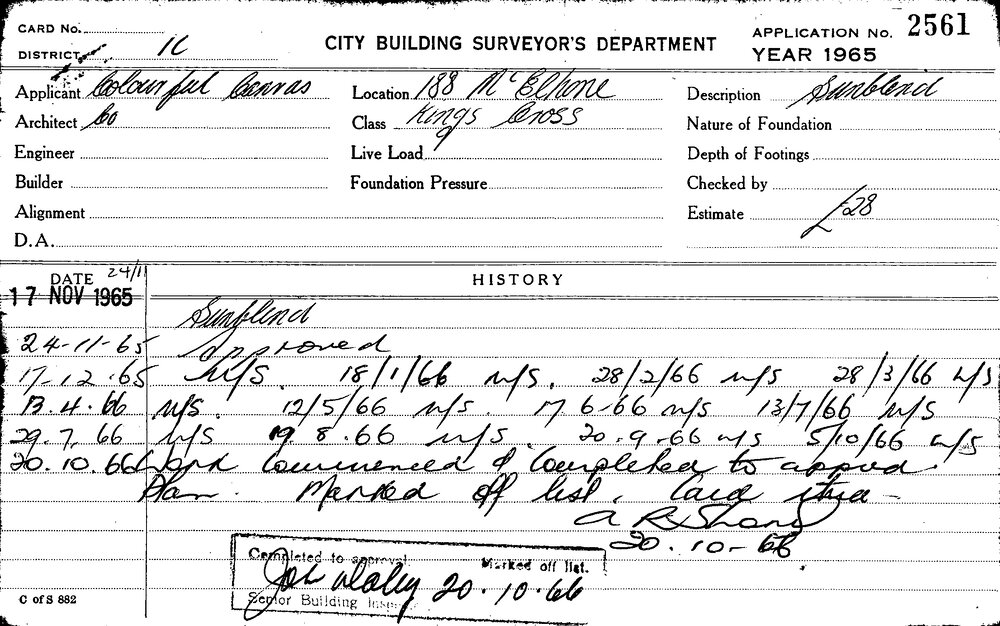 CARD No.
DISTRICT 1C
CITY BUILDING SURVEYOR'S DEPARTMENT
APPLICATION No. 2561
YEAR 1965
Applicant Colourful Canvas
Location 188 McElhone
Description Sunblind
Architect Co
Class Kings Cross
Nature of Foundation
Engineer
Live Load
Depth of Footings
Builder
Foundation Pressure
Checked by
Alignment
Estimate £28
D.A.
DATE 24/11
HISTORY
17 NOV 1965
Sunblind
24-11-65 approved
17-12-65 N/S. 18/1/66 N/S. 28/2/66 N/S 28/3/66 N/S
13.4.66 N/S. 12/5/66 N/S. 17 6-66 N/S 13/7/66 N/S
29.7.66 N/S 19.8.66 N/S. 20-9-66 N/S 5/10/66 N/S
20.10.66 Work Commenced & Completed to approd.
Plan. Marked off list. Card
20.10-66
Completed to approval. Marked off list.
20.10.66
Senior Building
C of S 882